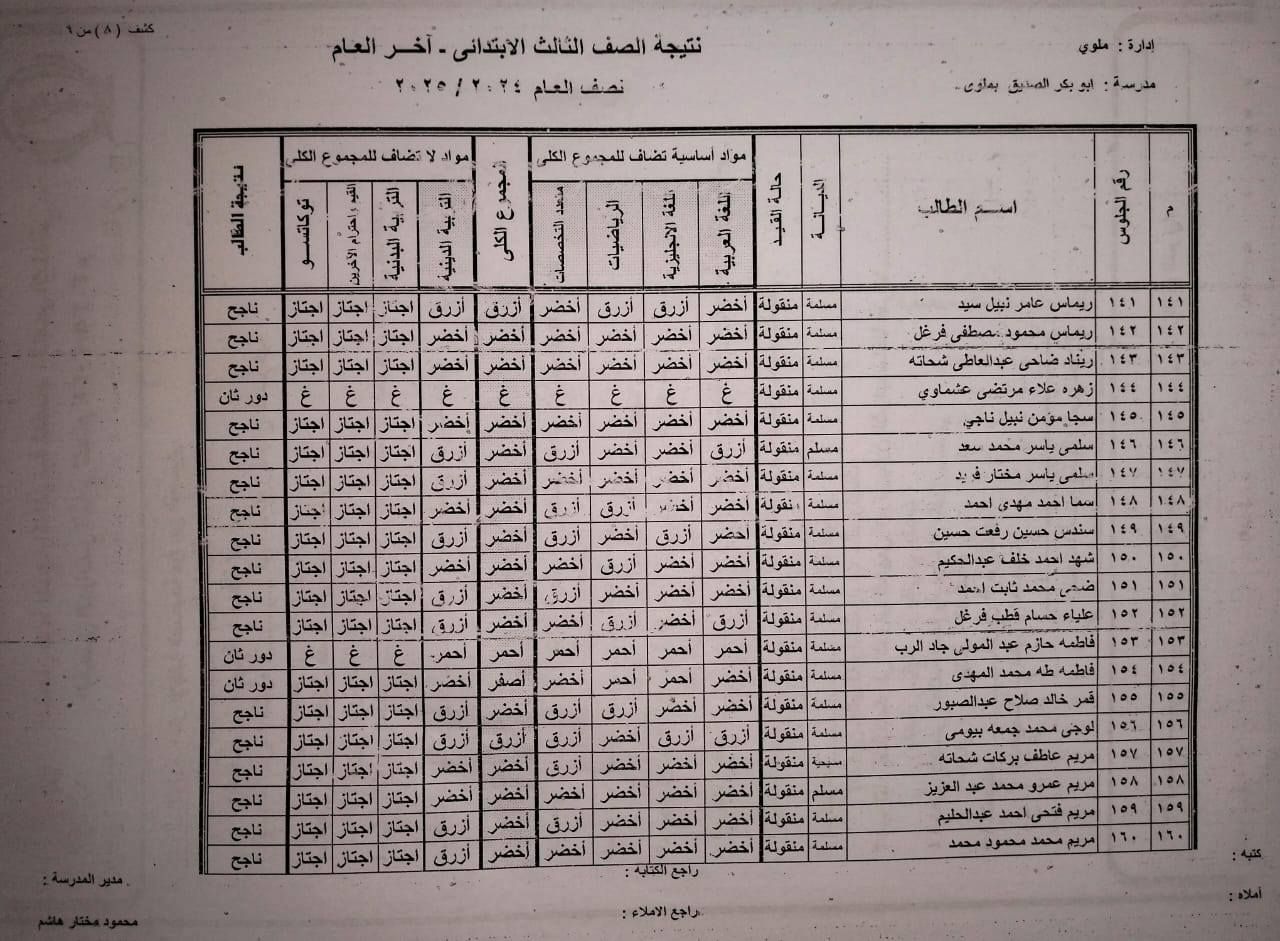 كشف (٨) من ٩
إدارة : ملوي
نتيجة الصف الثالث الابتدائى - آخر العام
مدرسة : ابو بكر الصديق بملوى
نصف العام ٢٠٢٤ / ٢٠٢٥
م رقم الجلوس اسم الطالب الديانة حالة القيد مواد أساسية تضاف للمجموع الكلى المجموع الكلى مواد لا تضاف للمجموع الكلى نتيجة الطالب
اللغة العربية اللغة الانجليزية الرياضيات متعدد التخصصات التربية الدينية التربية البدنية القيم واحترام الآخرين توكاتسو
١٤١ ١٤١ ريماس عامر نبيل سيد مسلمة منقولة أخضر أزرق أزرق أخضر أزرق أزرق اجتاز اجتاز اجتاز ناجح
١٤٢ ١٤٢ ريماس محمود مصطفى فرغل مسلمة منقولة أخضر أخضر أخضر أخضر أخضر أخضر اجتاز اجتاز اجتاز ناجح
١٤٣ ١٤٣ ريناد ضاحى عبدالعاطى شحاته مسلمة منقولة أخضر أخضر أخضر أخضر أخضر أخضر اجتاز اجتاز اجتاز ناجح
١٤٤ ١٤٤ زهره علاء مرتضى عشماوي مسلمة منقولة غ غ غ غ غ غ غ غ غ دور ثان
١٤٥ ١٤٥ سجا مؤمن نبيل ناجي مسلمة منقولة أخضر أخضر أخضر أخضر أخضر أخضر اجتاز اجتاز اجتاز ناجح
١٤٦ ١٤٦ سلمى ياسر محمد سعد مسلم منقولة أزرق أخضر أخضر أزرق أخضر أزرق اجتاز اجتاز اجتاز ناجح
١٤٧ ١٤٧ سلمى ياسر مختار فريد مسلمة منقولة أخضر أخضر أخضر أخضر أخضر أزرق اجتاز اجتاز اجتاز ناجح
١٤٨ ١٤٨ سما احمد مهدى احمد مسلمة منقولة أخضر أخضر أزرق أزرق أخضر أخضر اجتاز اجتاز اجتاز ناجح
١٤٩ ١٤٩ سندس حسين رفعت حسين مسلمة منقولة أخضر أزرق أخضر أزرق أخضر أزرق اجتاز اجتاز اجتاز ناجح
١٥٠ ١٥٠ شهد احمد خلف عبدالحكيم مسلمة منقولة أخضر أخضر أزرق أخضر أخضر أخضر اجتاز اجتاز اجتاز ناجح
١٥١ ١٥١ ضحى محمد ثابت احمد مسلمة منقولة أخضر أخضر أخضر أزرق أخضر أزرق اجتاز اجتاز اجتاز ناجح
١٥٢ ١٥٢ علياء حسام قطب فرغل مسلمة منقولة أزرق أخضر أزرق أخضر أخضر أزرق اجتاز اجتاز اجتاز ناجح
١٥٣ ١٥٣ فاطمه حازم عبد المولى جاد الرب مسلمة منقولة أحمر أحمر أحمر أحمر أحمر أحمر غ غ غ دور ثان
١٥٤ ١٥٤ فاطمه طه محمد المهدى مسلمة منقولة أخضر أحمر أحمر أخضر أصفر أخضر اجتاز اجتاز اجتاز دور ثان
١٥٥ ١٥٥ قمر خالد صلاح عبدالصبور مسلمة منقولة أخضر أخضر أزرق أزرق أخضر أزرق اجتاز اجتاز اجتاز ناجح
١٥٦ ١٥٦ لوجى محمد جمعه بيومى مسلمة منقولة أزرق أزرق أخضر أزرق أزرق أزرق اجتاز اجتاز اجتاز ناجح
١٥٧ ١٥٧ مريم عاطف بركات شحاته مسيحية منقولة أخضر أخضر أخضر أزرق أخضر أخضر اجتاز اجتاز اجتاز ناجح
١٥٨ ١٥٨ مريم عمرو محمد عبد العزيز مسلم منقولة أخضر أخضر أخضر أخضر أخضر أخضر اجتاز اجتاز اجتاز ناجح
١٥٩ ١٥٩ مريم فتحى احمد عبدالحليم مسلمة منقولة أخضر أخضر أخضر أزرق أخضر أزرق اجتاز اجتاز اجتاز ناجح
١٦٠ ١٦٠ مريم محمد محمود محمد مسلمة منقولة أخضر أخضر أخضر أخضر أخضر أزرق اجتاز اجتاز اجتاز ناجح
كتبه : راجع الكتابه : مدير المدرسة :
أملاه : راجع الاملاء : محمود مختار هاشم